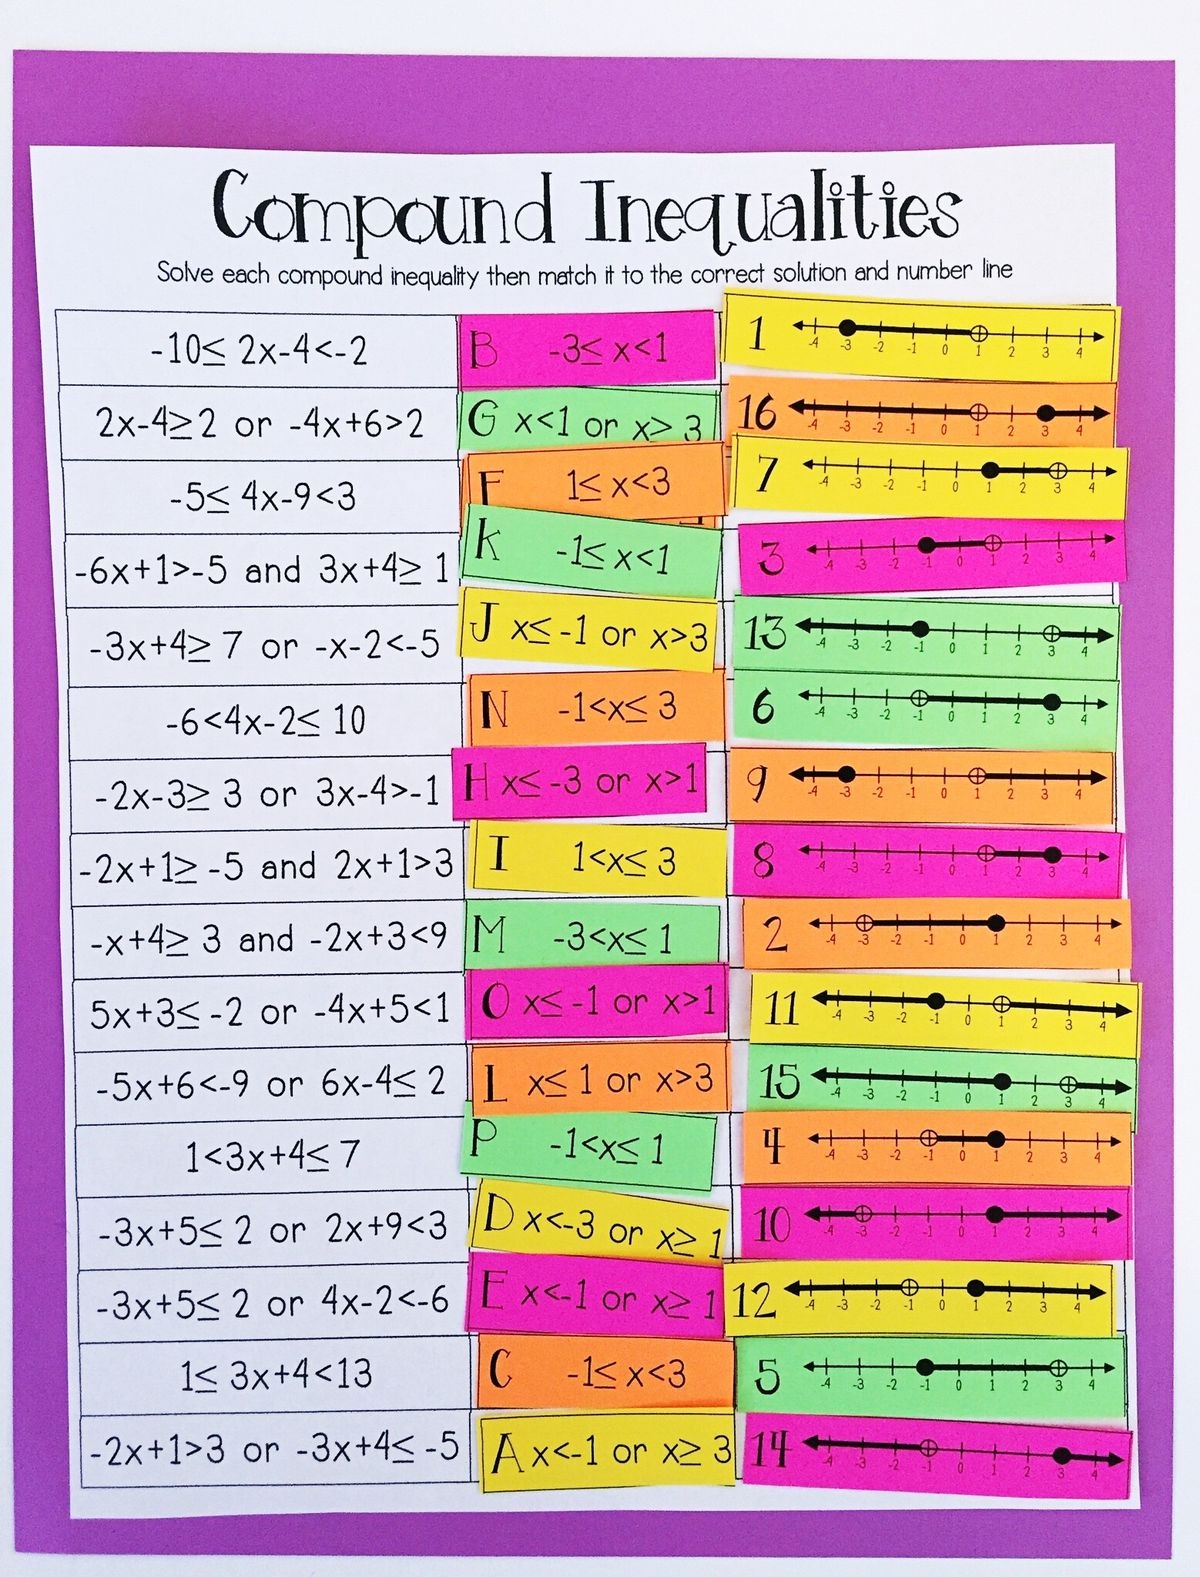 Compound Inequalities
Solve each compound inequality then match it to the correct solution and number line
-10≤ 2x-4<-2 B -3≤ x<1 1 -4 -3 -2 -1 0 1 2 3 4
2x-4≥2 or -4x+6>2 G x<1 or x≥ 3 16 -4 -3 -2 -1 0 1 2 3 4
-5≤ 4x-9<3 F 1≤ x<3 7 -4 -3 -2 -1 0 1 2 3 4
-6x+1>-5 and 3x+4≥ 1 K -1≤ x<1 3 -4 -3 -2 -1 0 1 2 3 4
-3x+4≥ 7 or -x-2<-5 J x≤ -1 or x>3 13 -4 -3 -2 -1 0 1 2 3 4
-6<4x-2≤ 10 N -1<x≤ 3 6 -4 -3 -2 -1 0 1 2 3 4
-2x-3≥ 3 or 3x-4>-1 H x≤ -3 or x>1 9 -4 -3 -2 -1 0 1 2 3 4
-2x+1≥ -5 and 2x+1>3 I 1<x≤ 3 8 -4 -3 -2 -1 0 1 2 3 4
-x+4≥ 3 and -2x+3<9 M -3<x≤ 1 2 -4 -3 -2 -1 0 1 2 3 4
5x+3≤ -2 or -4x+5<1 O x≤ -1 or x>1 11 -4 -3 -2 -1 0 1 2 3 4
-5x+6<-9 or 6x-4≤ 2 L x≤ 1 or x>3 15 -4 -3 -2 -1 0 1 2 3 4
1<3x+4≤ 7 P -1<x≤ 1 4 -4 -3 -2 -1 0 1 2 3 4
-3x+5≤ 2 or 2x+9<3 D x<-3 or x≥ 1 10 -4 -3 -2 -1 0 1 2 3 4
-3x+5≤ 2 or 4x-2<-6 E x<-1 or x≥ 1 12 -4 -3 -2 -1 0 1 2 3 4
1≤ 3x+4<13 C -1≤ x<3 5 -4 -3 -2 -1 0 1 2 3 4
-2x+1>3 or -3x+4≤ -5 A x<-1 or x≥ 3 14 -4 -3 -2 -1 0 1 2 3 4